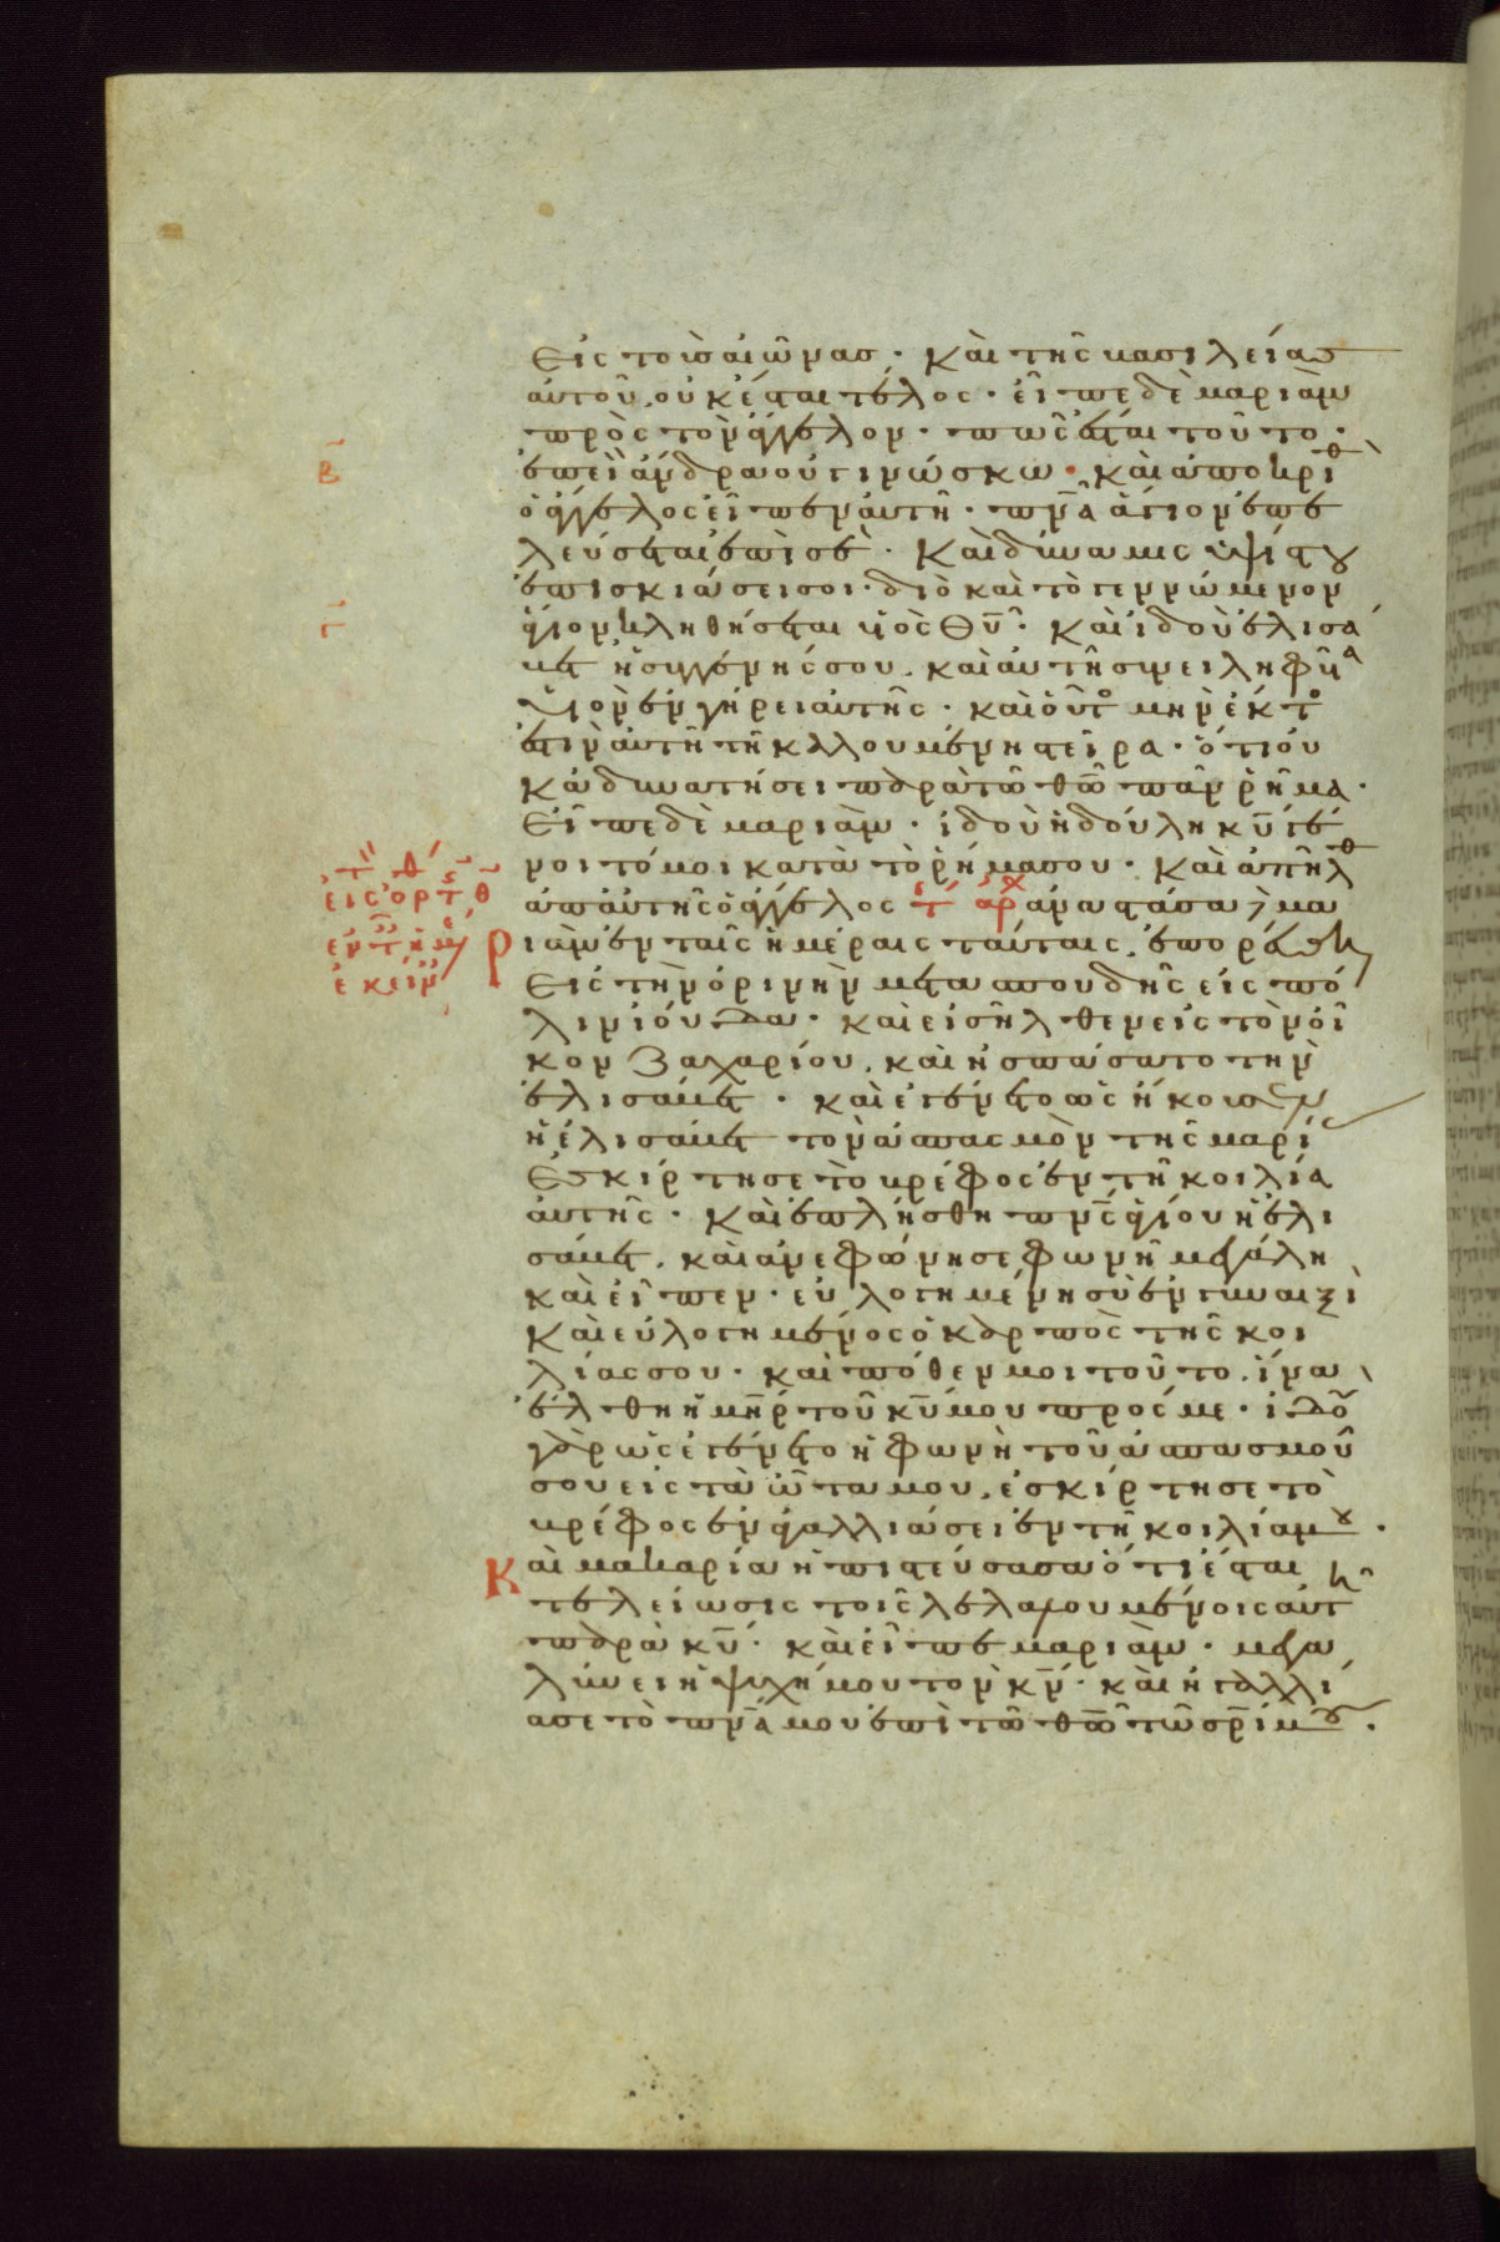 Εἰς τοὺς αἰῶνας · καὶ τῆς βασιλείας
αὐτοῦ, οὐκ ἔσται τέλος · εἶπε δὲ μαριὰμ
πρὸς τὸν ἄγγελον · πῶς ἔσται τοῦτο ·
Β
ἐπεὶ ἄνδρα οὐ γινώσκω · καὶ ἀποκριθ
ὁ ἄγγελος εἶπεν αὐτῆ · πν̅α ἅγιον ἐπε
λεύσεται ἐπὶ σὲ · Καὶ δύναμις ὑψίστου
ἐπισκιάσει σοι · διὸ καὶ τὸ γεννώμενον
Γ
ἅγιον κληθήσεται υἱὸς Θυ̅ · καὶ ἰδοὺ ἐλισά
βετ ἡ συγγενής σου, καὶ αὐτὴ συνειληφυῖα
υἱὸν ἐν γήρει αὐτῆς · καὶ οὗτο μὴν ἕκτο
ἐστὶν αὐτῆ τῆ καλουμένη στεῖρα · ὅτι οὐ
κ ἀδυνατήσει παρὰ τῶ θῶ πᾶν ῥῆμα ·
Εἶπε δὲ μαριὰμ · ἰδοὺ ἡ δούλη κυ̅ γέ
νοιτό μοι κατὰ τὸ ῥῆμα σου · Καὶ ἀπῆλθ
εἰς ὀρτ θ
ἀπ αὐτῆς ὁ ἄγγελος τ ἀρχ ἀναστᾶσα μα
ἐν τ ἡμ
ριὰμ ἐν ταῖς ἡμέραις ταύταις, ἐπορεύθη
ἐκειν
Εἰς τὴν ὀρινὴν μετὰ σπουδῆς εἰς πό
λιν ἰούδα · καὶ εἰσῆλθεν εἰς τὸν οἶ
κον Ζαχαρίου, καὶ ἠσπάσατο τὴν
ἐλισάβετ · καὶ ἐγένετο ὡς ἤκουσεν
ἡ ἐλισάβετ τὸν ἀσπασμὸν τῆς μαρί
Ἐσκίρτησε τὸ βρέφος ἐν τῆ κοιλία
αὐτῆς · Καὶ ἐπλήσθη πν̅ς ἁγίου ἡ ἐλι
σάβετ, καὶ ἀνεφώνησε φωνῆ μεγάλη
καὶ εἶπεν · εὐλογημένη σὺ ἐν γυναιξὶ
Καὶ εὐλογημένος ὁ καρπὸς τῆς κοι
λίας σου · καὶ πόθεν μοι τοῦτο, ἵνα
ἔλθη ἡ μη̅ρ τοῦ κυ̅ μου πρός με · ἰδοὺ
γὰρ ὡς ἐγένετο ἡ φωνὴ τοῦ ἀσπασμοῦ
σου εἰς τὰ ὦτα μου, ἐσκίρτησε τὸ
βρέφος ἐν ἀγαλλιάσει ἐν τῆ κοιλία μου ·
Καὶ μακαρία ἡ πιστεύσασα ὅτι ἔσται
τελείωσις τοῖς λελαλουμένοις αὐτῆ
παρὰ κυ̅ · καὶ εἶπε μαριὰμ · μεγα
λύνει ἡ ψυχή μου τὸν κν̅ · καὶ ἠγαλλί
ασε τὸ πν̅α μου ἐπὶ τῶ θῶ τῶ σρ̅ί μου ·